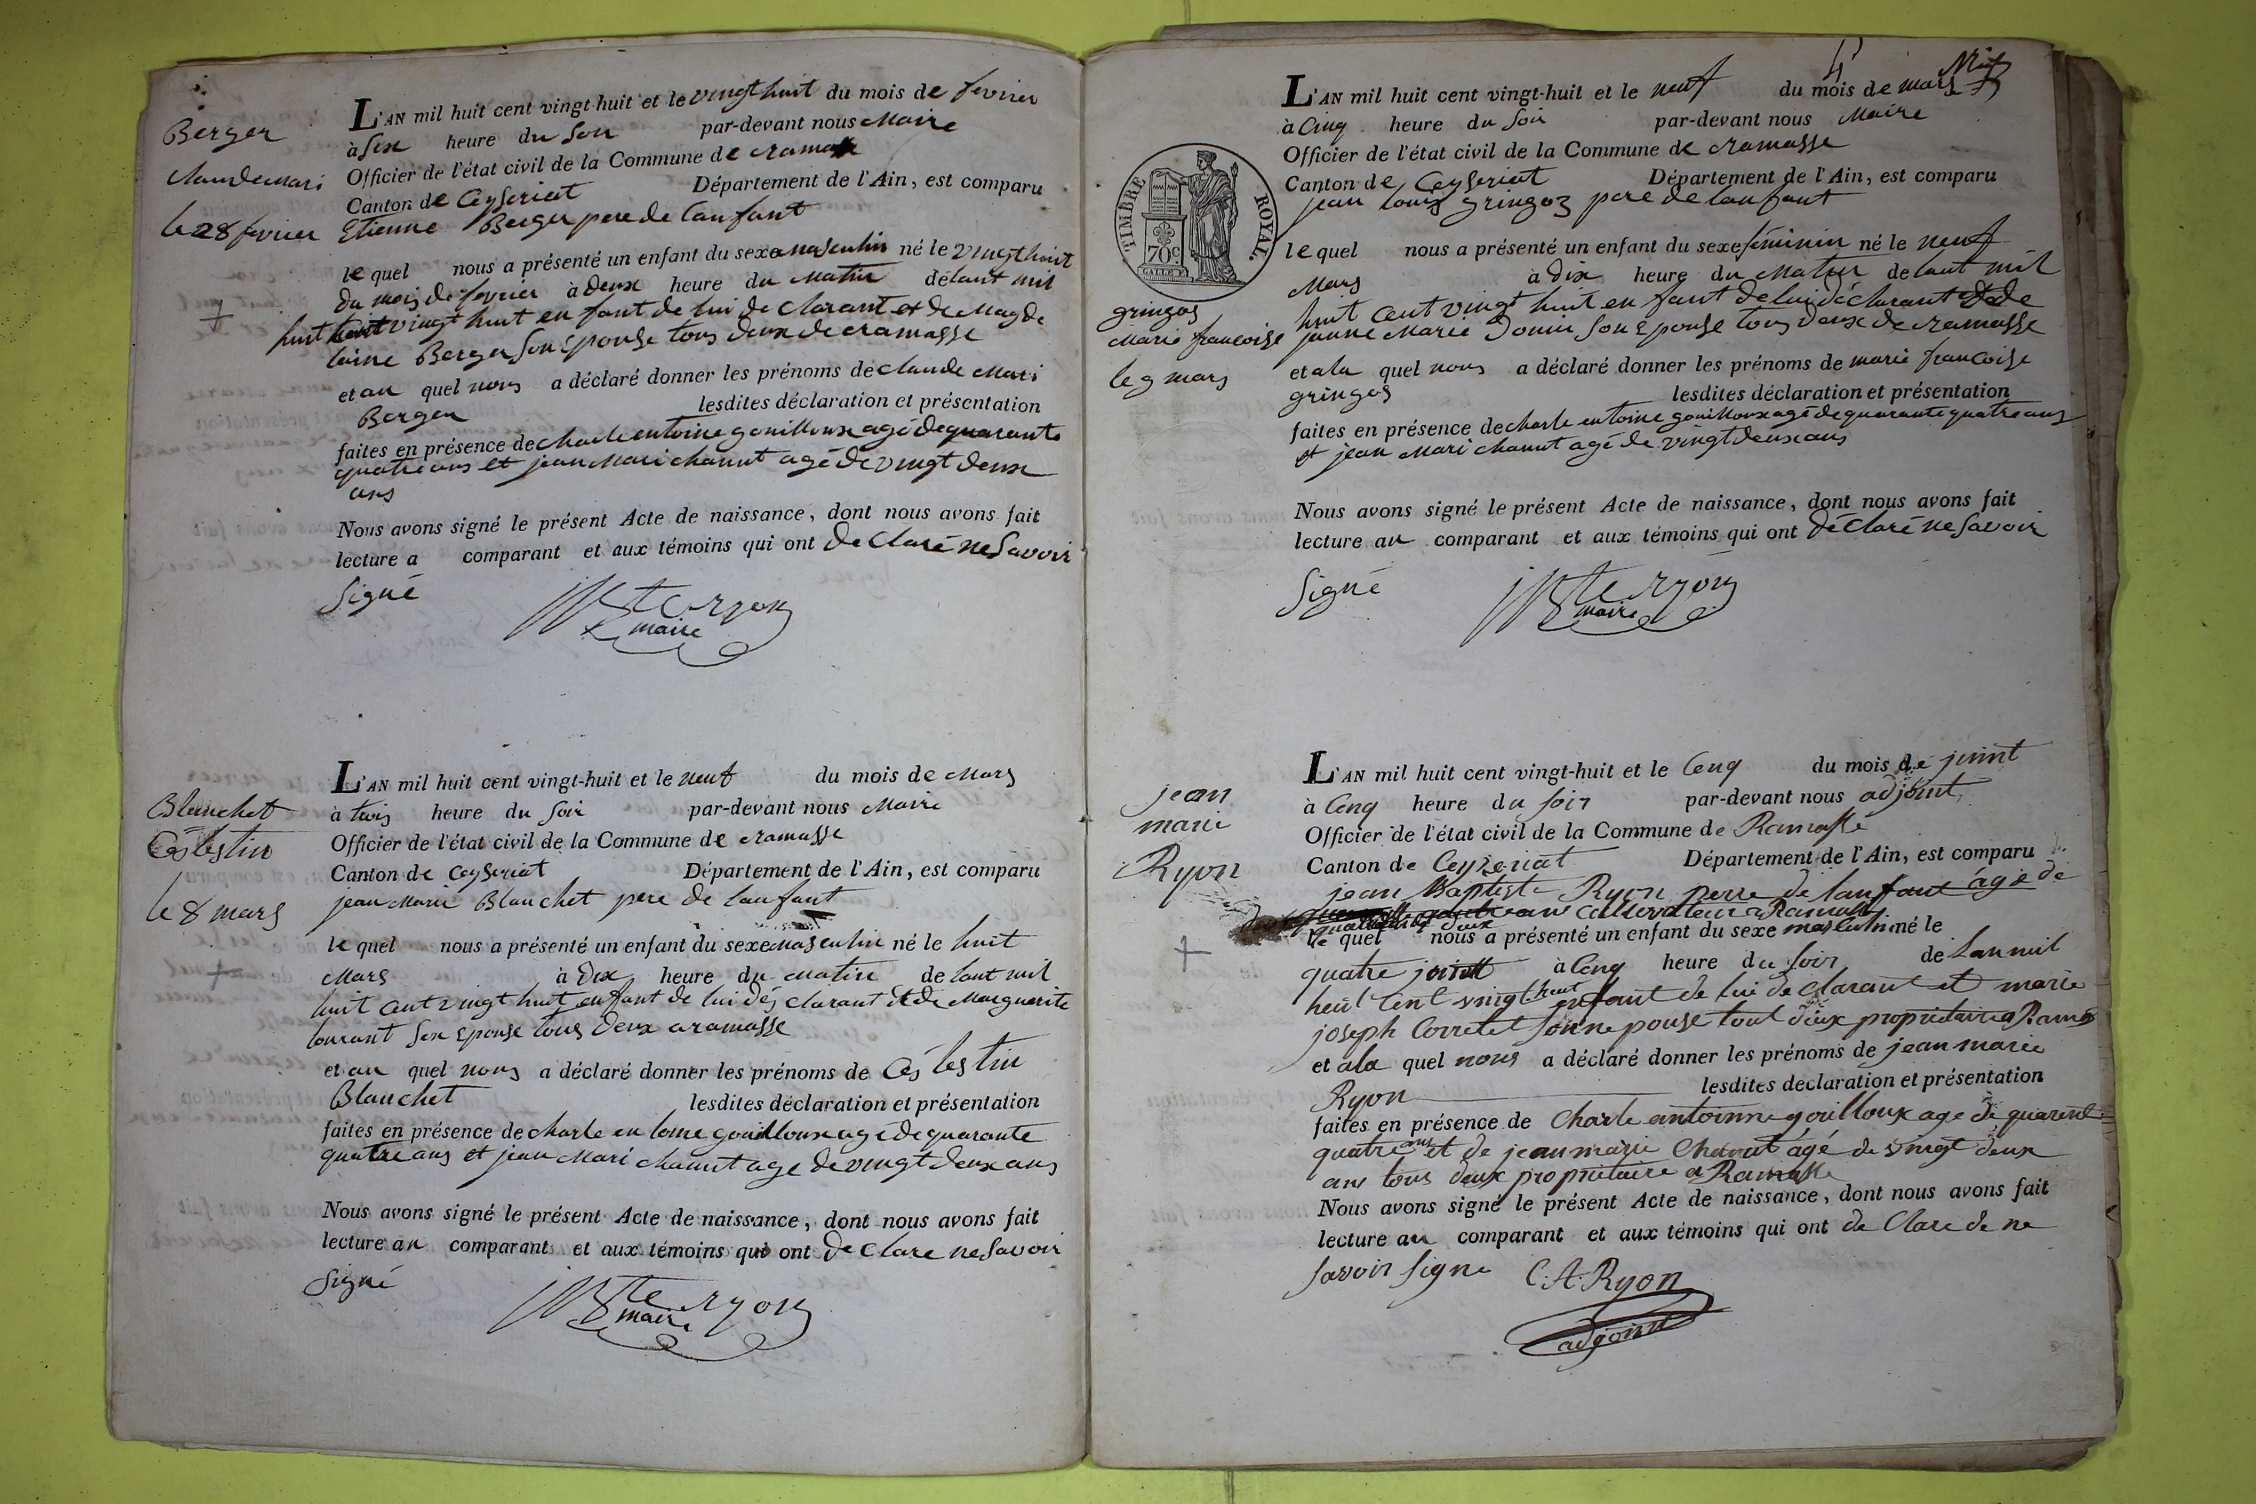 Berger
Claude Mari
le 28 fevrier
L'AN mil huit cent vingt-huit et le vingt huit du mois de fevrier
à six heure du Soir par-devant nous Maire
Officier de l'état civil de la Commune de ramasse
Canton de Ceyseriat Département de l'Ain, est comparu
Etienne Berger pere de l'anfant
le quel nous a présenté un enfant du sexe masculin né le vingt huit
du mois de fevrier à deux heure du Matin de lant mil
huit cent vingt huit en fant de lui de clarant et de Magde
laine Berger son éponse tous deux de ramasse
et au quel nous a déclaré donner les prénoms de claude Mari
Berger lesdites déclaration et présentation
faites en présence de charle entoine gouilloux agé de quarante
quatre ans et jean Mari chanut agé de vingt deux
ans
Nous avons signé le présent Acte de naissance, dont nous avons fait
lecture a comparant et aux témoins qui ont de claré ne Savoir
Signé
JBte ryon
maire
Blanchet
Céslestin
le 8 mars
L'AN mil huit cent vingt-huit et le neuf du mois de Mars
à trois heure du Soir par-devant nous Maire
Officier de l'état civil de la Commune de ramasse
Canton de Ceyseriat Département de l'Ain, est comparu
jean Marie Blanchet pere de lanfant
le quel nous a présenté un enfant du sexe masculin né le huit
Mars à dix heure du matin de lant mil
huit cent vingt huit enfant de lui dés clarant et de Marguerite
son Eponse tous deux a ramasse
et au quel nous a déclaré donner les prénoms de Céslestin
Blanchet lesdites déclaration et présentation
faites en présence de charle en toine gouilloux agé de quarante
quatre ans et jean Mari chanut age de vingt deux ans
Nous avons signé le présent Acte de naissance, dont nous avons fait
lecture au comparant et aux témoins qui ont de clare ne Savoir
Signé
JBte ryon
maire
4
TIMBRE ROYAL
70c
gringos
Marie francoise
le 9 mars
L'AN mil huit cent vingt-huit et le neuf du mois de mars
à Cinq heure du Soir par-devant nous Maire
Officier de l'état civil de la Commune de ramasse
Canton de Ceyseriat Département de l'Ain, est comparu
jean louis gringoz pere de lanfant
le quel nous a présenté un enfant du sexe féminin né le neuf
Mars à dix heure du Matin de lant mil
huit cent vingt huit en fant de lui déclarant et de
janne Marie son Eponse tous deux de ramasse
et a la quel nous a déclaré donner les prénoms de marie francoise
gringos lesdites déclaration et présentation
faites en présence de charle entoine gouilloux agé de quarante quatre ans
et jean Mari chanut agé de vingt deux ans
Nous avons signé le présent Acte de naissance, dont nous avons fait
lecture au comparant et aux témoins qui ont déclaré ne Savoir
Signé
JBte ryon
maire
jean
marie
Ryon
L'AN mil huit cent vingt-huit et le Cenq du mois de juint
à Cenq heure du soir par-devant nous adjoint
Officier de l'état civil de la Commune de Ramasse
Canton de Ceyzeriat Département de l'Ain, est comparu
jean Baptiste Ryon perre de lanfant âgé de
cultivateur a Ramasse
le quel nous a présenté un enfant du sexe masculin né le
quatre juint à Cenq heure du soir de lan mil
heuit cent vingt heut enfant de lui de clarant et marie
joseph Corretet sonne pouse tout deux propriétaire a Ramas
et a la quel nous a déclaré donner les prénoms de jean marie
Ryon lesdites déclaration et présentation
faites en présence de Charle antoinne gouilloux age de quarente
quatre ans et de jean marie Chanut âgé de vingt deux
ans tous deux propriétaire a Ramasse
Nous avons signé le présent Acte de naissance, dont nous avons fait
lecture au comparant et aux témoins qui ont de Clare de ne
savoir signe
C. A. Ryon
adjoint